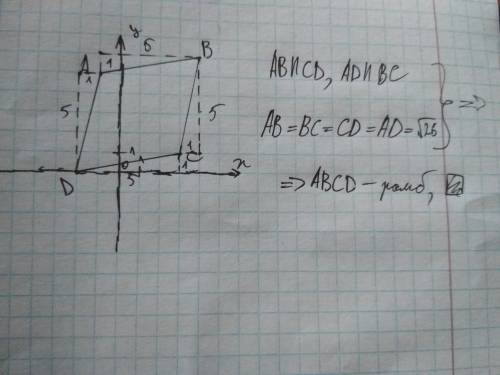 y
5
B
A
1
1
5
5
1
1
C
0
1
1
x
D
5
AB∥CD, AD∥BC
AB=BC=CD=AD=√26
=>
=>ABCD – ромб,